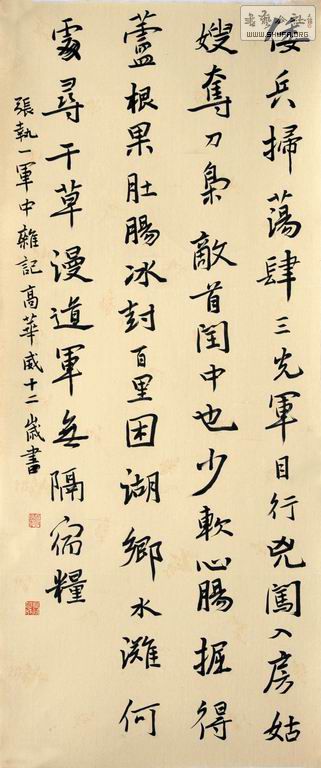 倭兵掃蕩肆三光軍目行兇闖入房姑
嫂奪刀梟敵首閨中也少軟心腸掘得
蘆根果肚腸冰封百里困湖鄉水灘何
處尋干草漫道軍無隔宿糧
張執一軍中雜記高華威十二歲書
WWW.SHUFA.ORG